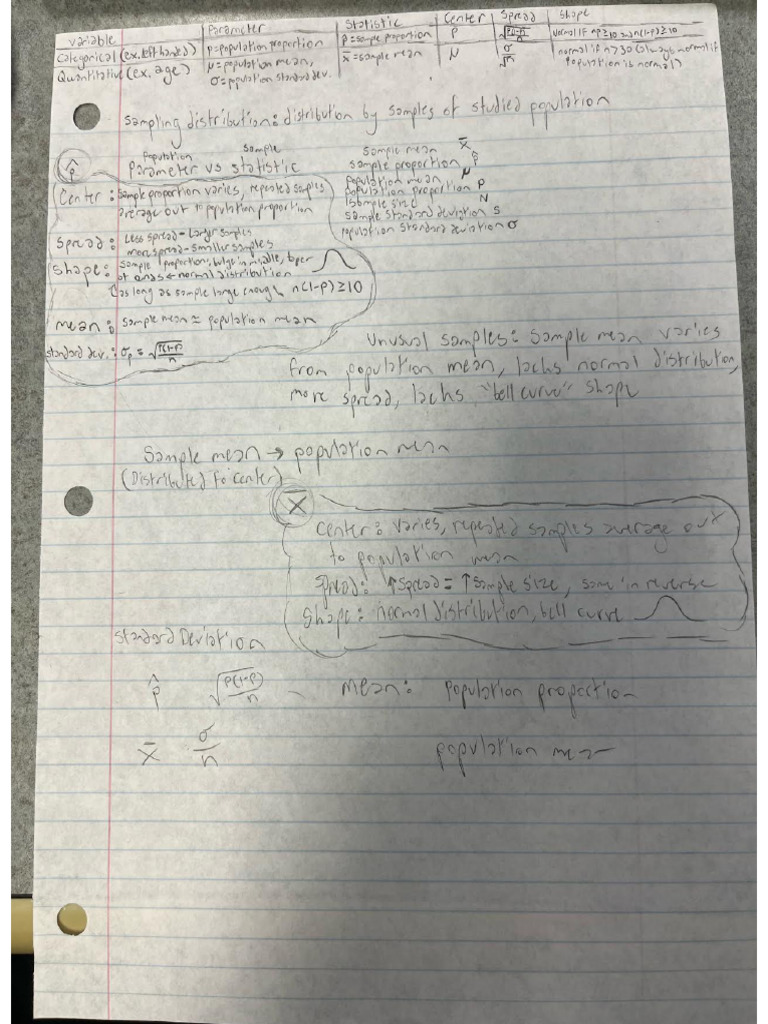 Variable | Parameter | Statistic | Center | Spread | Shape
Categorical (ex. left handed) | p=population proportion | p̂=sample proportion | p | √p(1-p)/n | normal if np≥10 and n(1-p)≥10
Quantitative (ex. age) | μ=population mean, σ=population standard dev. | x̄=sample mean | μ | σ/√n | normal if n>30 (always normal if population is normal)
Sampling distribution: distribution by samples of studied population
Population Sample
Parameter vs statistic
p̂
Center: Sample proportion varies, repeated samples
average out to population proportion
Spread: Less spread - Larger samples
more spread - smaller samples
Shape: Sample proportions, bulge in middle, taper
at ends ← normal distribution
(as long as sample large enough n(1-p)≥10
mean: Sample mean ≈ population mean
standard dev.: σp = √p(1-p)/n
Sample mean x̄
sample proportion p̂
population mean μ
population proportion P
sample size N
sample standard deviation s
population standard deviation σ
Unusual samples: Sample mean varies
from population mean, lacks normal distribution,
more spread, lacks "bell curve" shape
Sample mean → population mean
(Distributed to center)
x̄
Center: Varies, repeated samples average out
to population mean
Spread: ↑Spread = ↑Sample size, same in reverse
Shape: normal distribution, bell curve
Standard Deviation
p̂ √p(1-p)/n - mean: population proportion
x̄ σ/n population mean